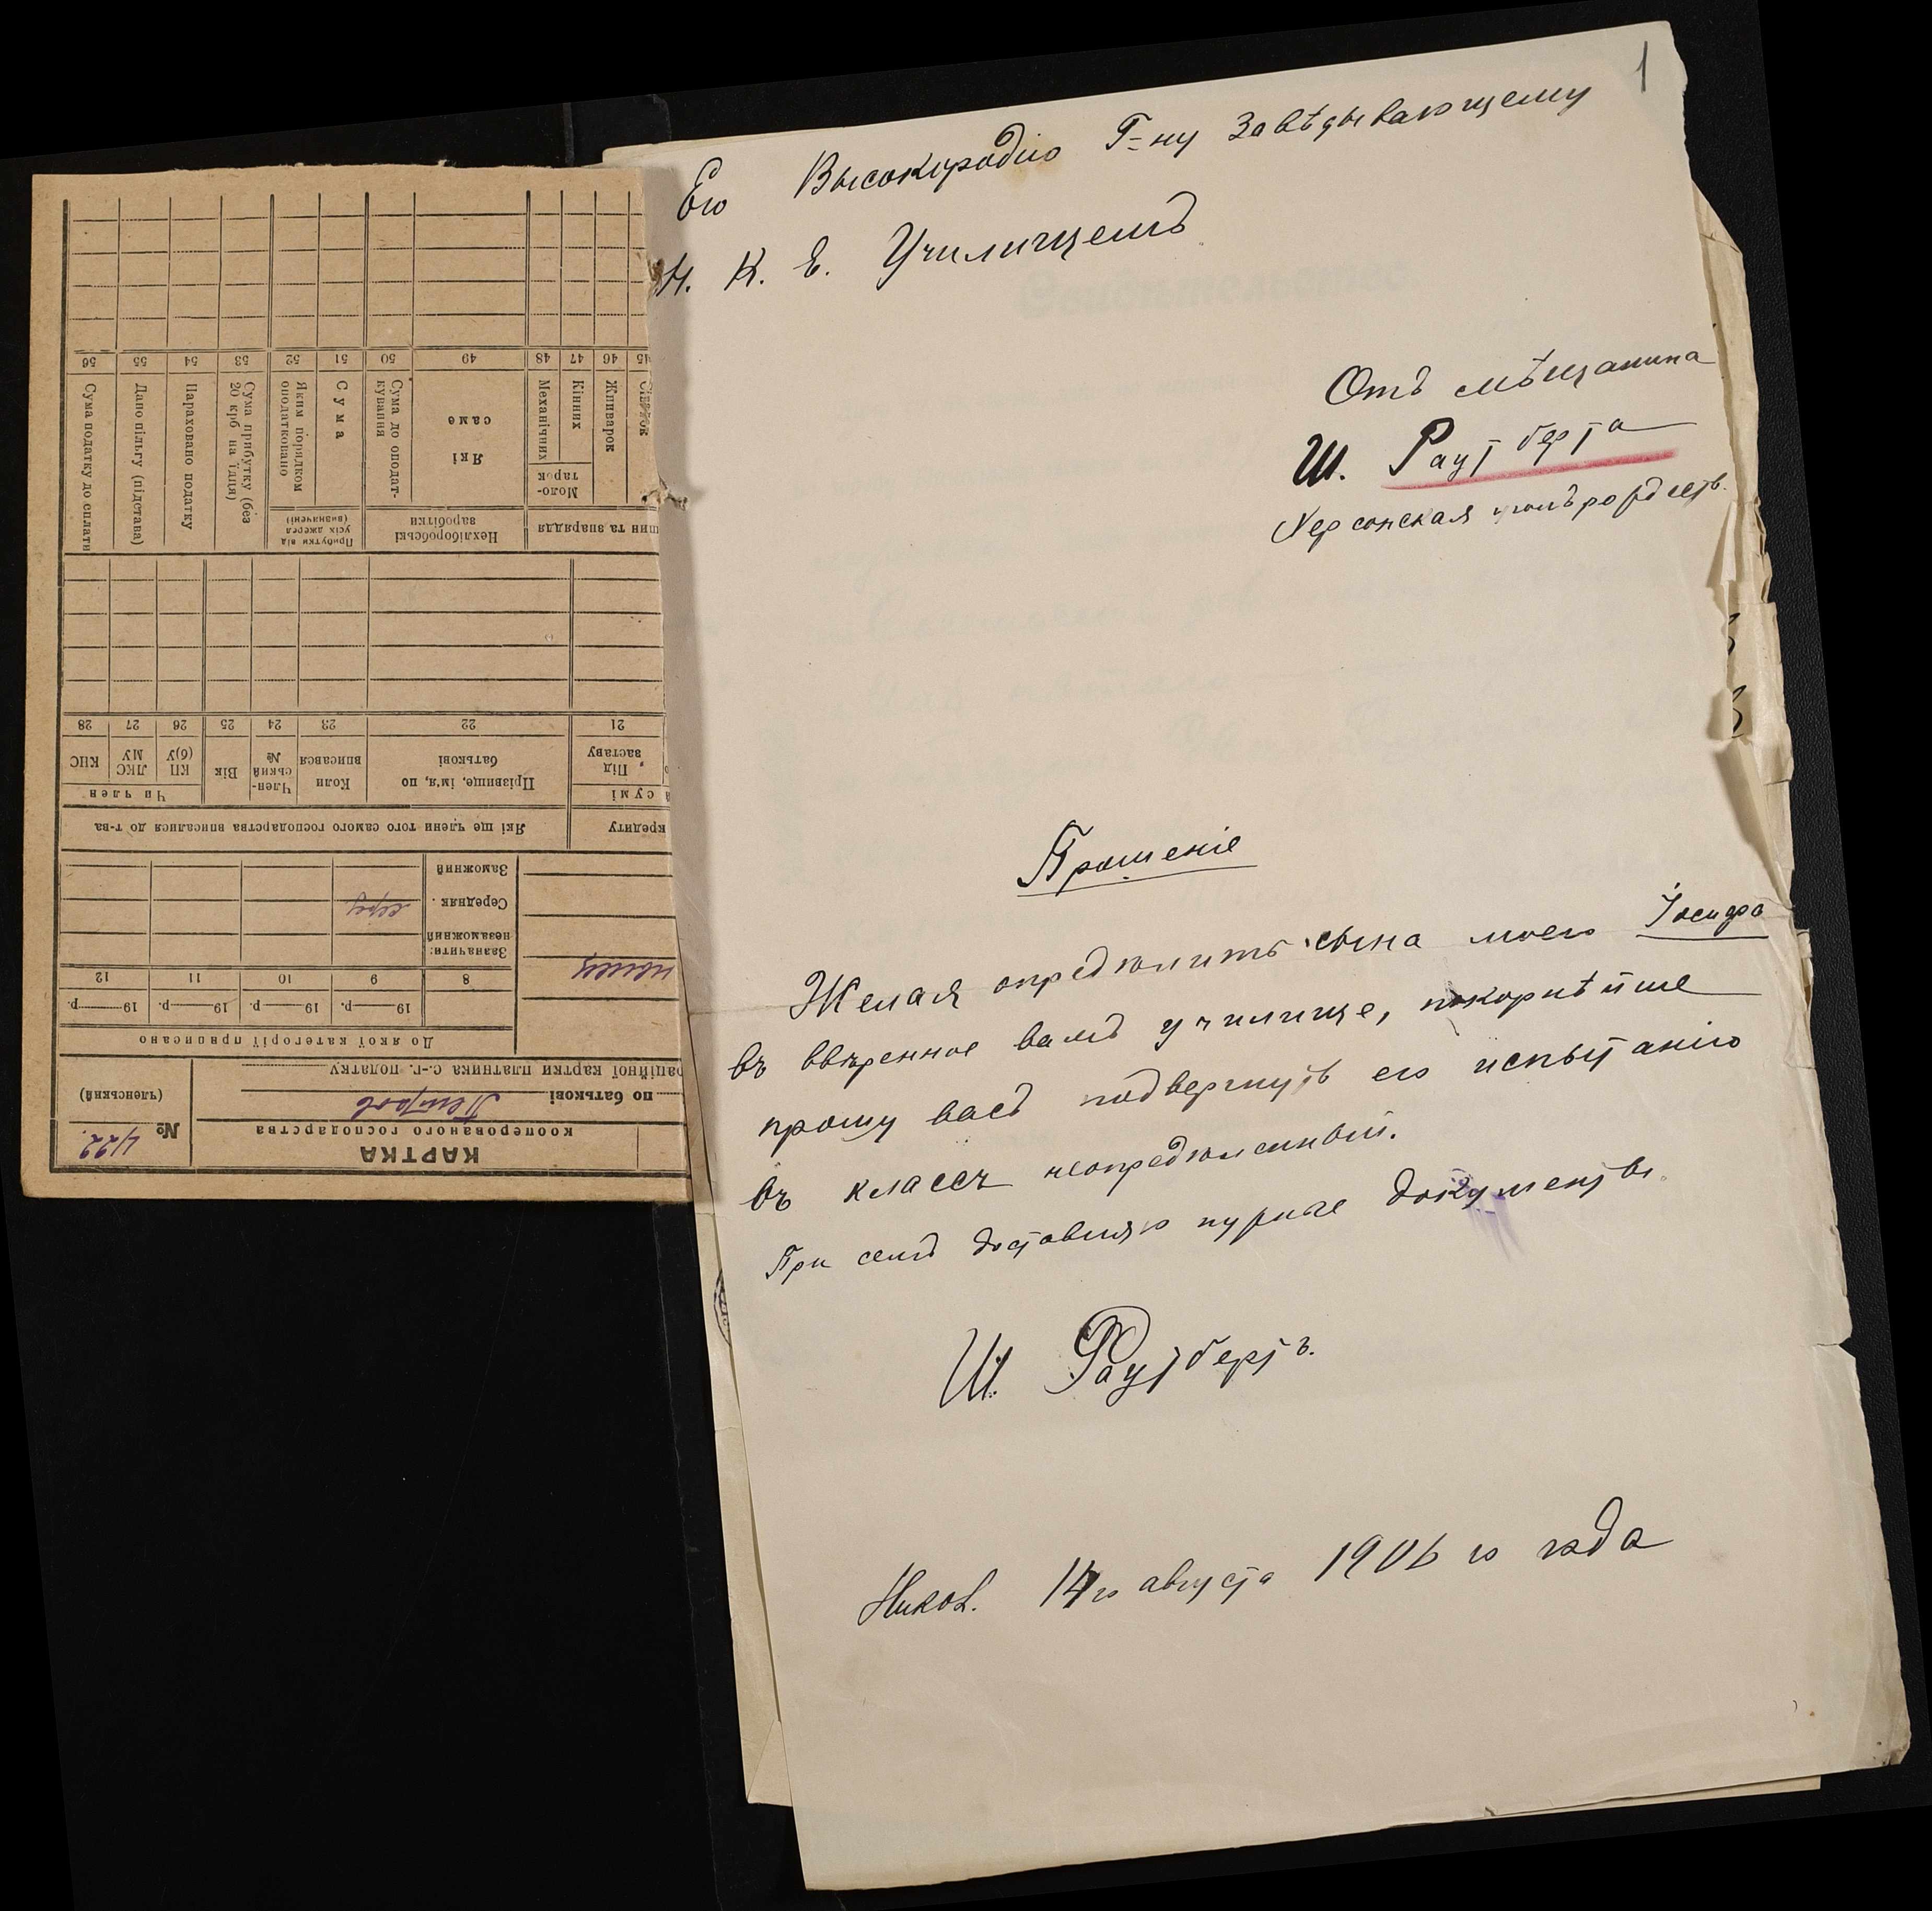 1
Его Высокородію Г=ну Завѣдывающему
Н. К. Е. Училищемъ
Отъ мѣщанина
Ш. Раутберга
Херсонская
Прошеніе
Желая опредѣлить сына моего Іосифа
въ ввѣренное вамъ училище, покорнѣйше
прошу васъ подвергнуть его испытанію
въ классъ неопредѣленный.
При семъ доставляю нужные документы.
Ш. Раутбергъ.
Никол. 14го августа 1906 го года
КАРТКА
кооперованого господарства
№ 422
(членський)
по батькові Петров
раційної картки платника с.-г. податку
До якої категорії приписано
19 р. 19 р. 19 р. 19 р.
8 9 10 11 12
Зазначити:
незаможний
Середняк серед
Заможний
Які ще члени того самого господарства вписалися до т-ва
кредиту
а сумі
Під заставу
Прізвище, ім'я, по батькові
Коли вписався
Член-ський №
Вік
Чи член
КП(б)У
ЛКСМУ
КНС
21 22 23 24 25 26 27 28
шин та знаряддя
Нехліборобські заробітки
Прибутки від усіх джерел (визначені)
Моло-тарок
Жниварок
Кінних
Механічних
Які саме
Сума до оподат-кування
Сума
Яким порядком оподатковано
Сума прибутку (без 20 крб на їдця)
Нараховано податку
Дано пільгу (підстава)
Сума податку до сплати
45 46 47 48 49 50 51 52 53 54 55 56